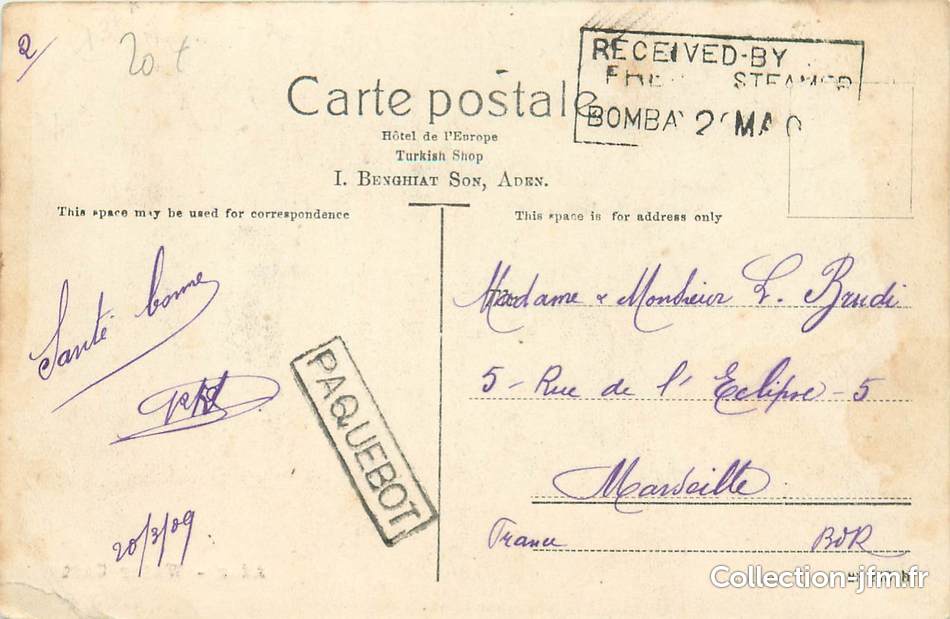 2/
20 €
RECEIVED-BY
STEAMER
BOMBAY 2 MA
Carte postale
Hôtel de l'Europe
Turkish Shop
I. Benghiat Son, Aden.
This space may be used for correspondence
This space is for address only
Santé bonne
20/3/09
PAQUEBOT
Madame & Monsieur L. Brudi
5 - Rue de l'Eclipse - 5
Marseille
France BDR
Collection-jfm.fr